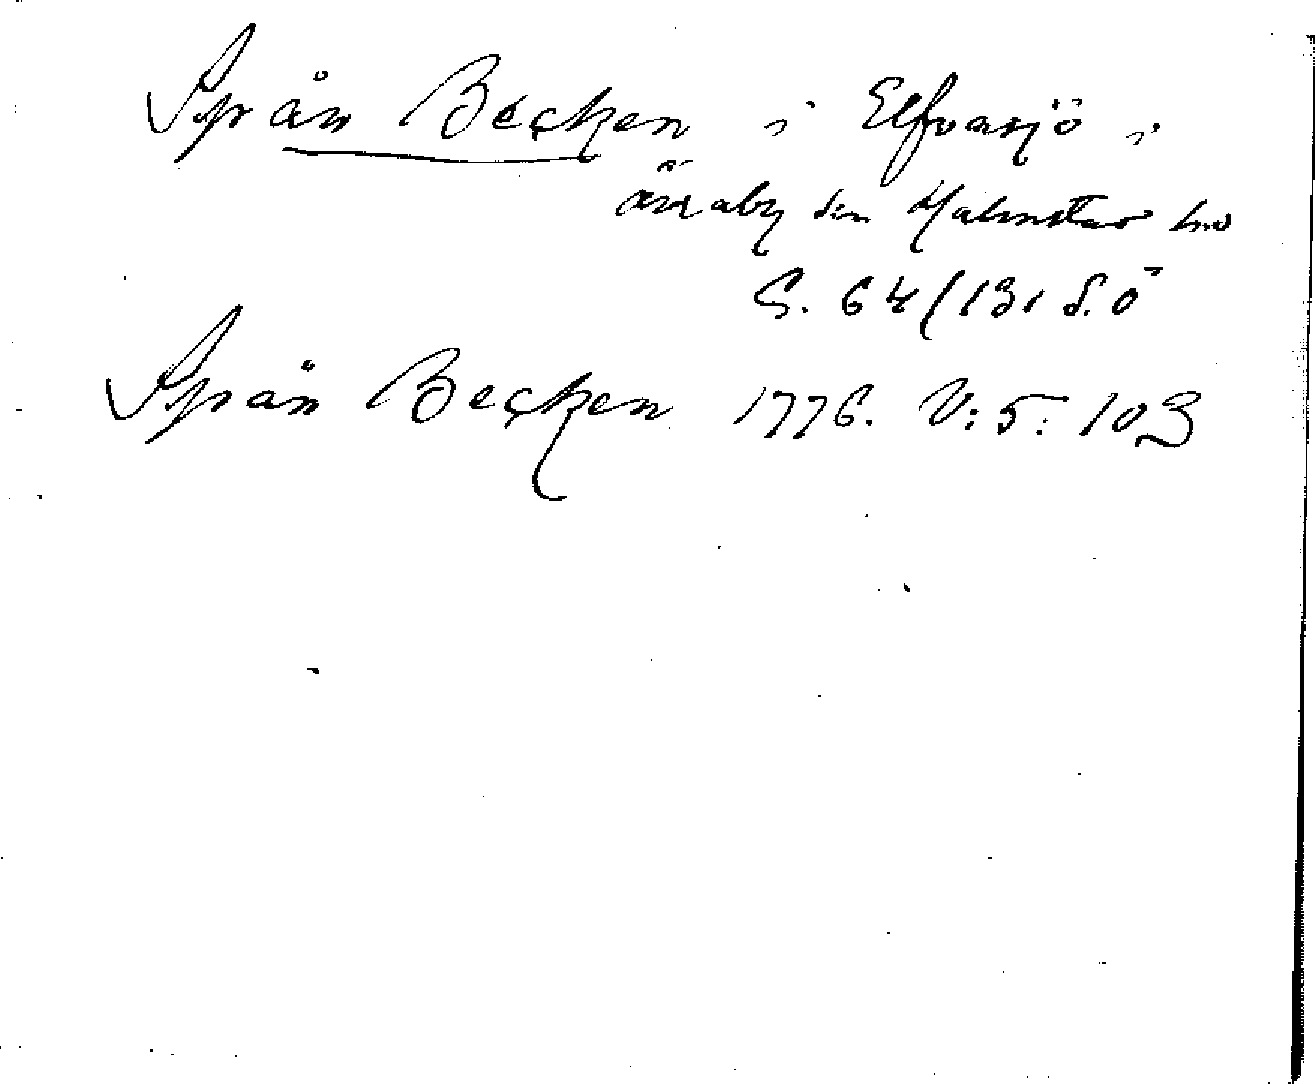 Spån Becken i Elfvasjö i
åraby den Halmstad h:o
S. 64/131 d. ö
Spån Becken 1776. V:5:103